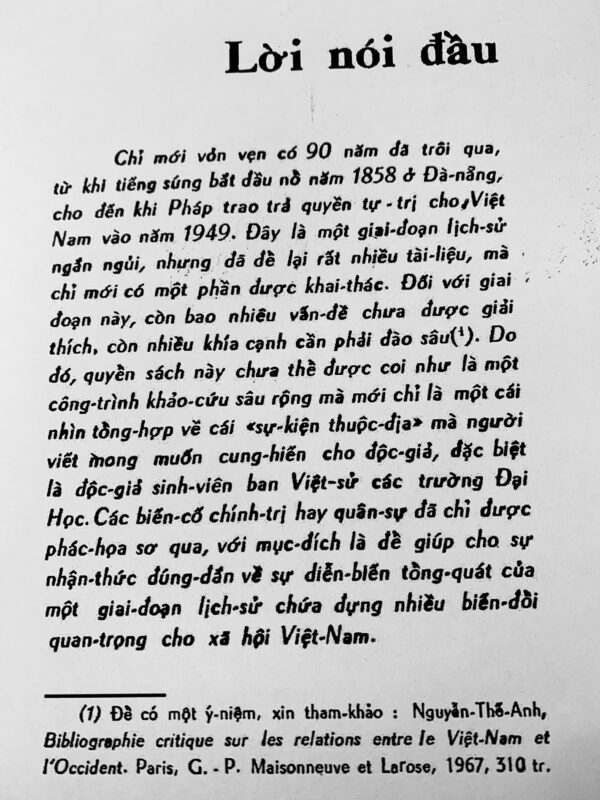 Lời nói đầu
Chỉ mới vỏn vẹn có 90 năm đã trôi qua,
từ khi tiếng súng bắt đầu nổ năm 1858 ở Đà-nẵng,
cho đến khi Pháp trao trả quyền tự-trị cho Việt
Nam vào năm 1949. Đây là một giai-đoạn lịch-sử
ngắn ngủi, nhưng đã để lại rất nhiều tài-liệu, mà
chỉ mới có một phần được khai-thác. Đối với giai
đoạn này, còn bao nhiêu vấn-đề chưa được giải
thích, còn nhiều khía cạnh cần phải đào sâu(¹). Do
đó, quyển sách này chưa thể được coi như là một
công-trình khảo-cứu sâu rộng mà mới chỉ là một cái
nhìn tổng-hợp về cái «sự-kiện thuộc-địa» mà người
viết mong muốn cung-hiến cho độc-giả, đặc biệt
là độc-giả sinh-viên ban Việt-sử các trường Đại
Học. Các biến-cố chính-trị hay quân-sự đã chỉ được
phác-họa sơ qua, với mục-đích là để giúp cho sự
nhận-thức đúng-đắn về sự diễn-biến tổng-quát của
một giai-đoạn lịch-sử chứa đựng nhiều biến-đổi
quan-trọng cho xã hội Việt-Nam.
(1) Để có một ý-niệm, xin tham-khảo : Nguyễn-Thế-Anh,
Bibliographie critique sur les relations entre le Việt-Nam et
l'Occident. Paris, G. - P. Maisonneuve et Larose, 1967, 310 tr.